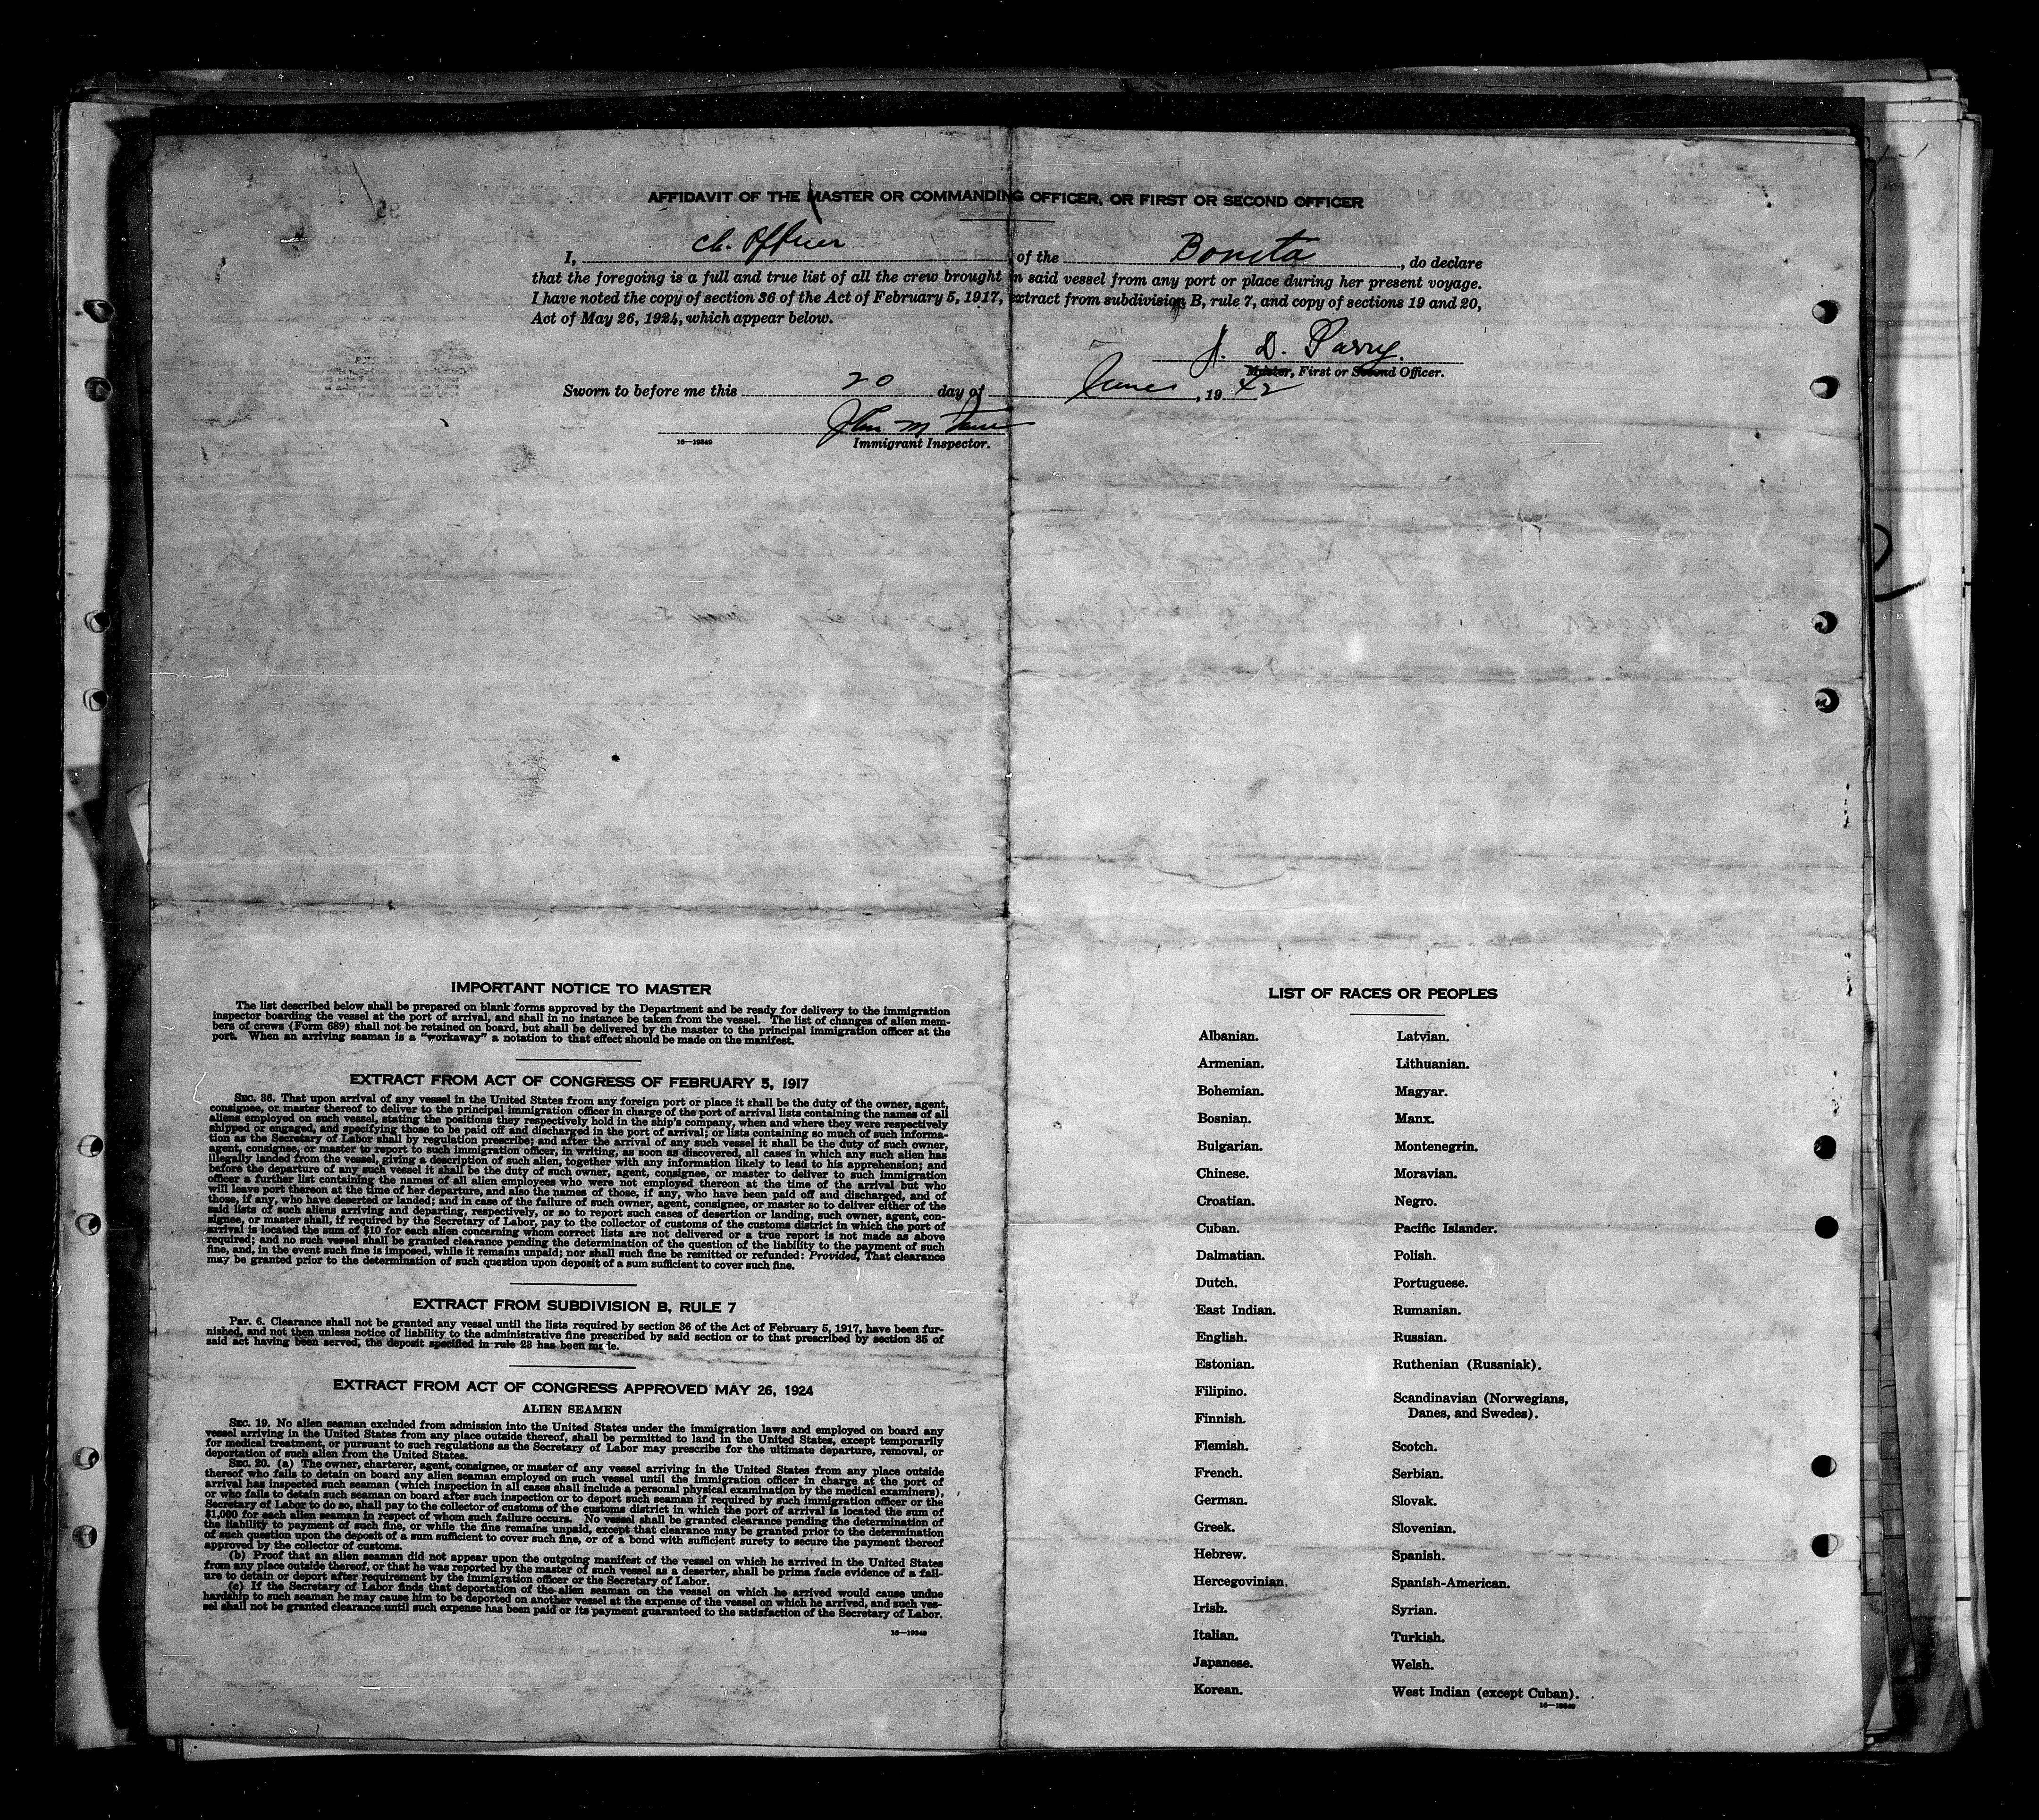 AFFIDAVIT OF THE MASTER OR COMMANDING OFFICER, OR FIRST OR SECOND OFFICER
I, Ch. Officer of the Bonita, do declare
that the foregoing is a full and true list of all the crew brought in said vessel from any port or place during her present voyage.
I have noted the copy of section 36 of the Act of February 5, 1917, extract from subdivision B, rule 7, and copy of sections 19 and 20,
Act of May 26, 1924, which appear below.
J. D. Parry.
Master, First or Second Officer.
Sworn to before me this 20 day of June, 1942
John M
16—19349 Immigrant Inspector.
IMPORTANT NOTICE TO MASTER
The list described below shall be prepared on blank forms approved by the Department and be ready for delivery to the immigration
inspector boarding the vessel at the port of arrival, and shall in no instance be taken from the vessel. The list of changes of alien mem-
bers of crews (Form 689) shall not be retained on board, but shall be delivered by the master to the principal immigration officer at the
port. When an arriving seaman is a "workaway" a notation to that effect should be made on the manifest.
EXTRACT FROM ACT OF CONGRESS OF FEBRUARY 5, 1917
SEC. 36. That upon arrival of any vessel in the United States from any foreign port or place it shall be the duty of the owner, agent,
consignee, or master thereof to deliver to the principal immigration officer in charge of the port of arrival lists containing the names of all
aliens employed on such vessel, stating the positions they respectively hold in the ship's company, when and where they were respectively
shipped or engaged, and specifying those to be paid off and discharged in the port of arrival; or lists containing so much of such informa-
tion as the Secretary of Labor shall by regulation prescribe; and after the arrival of any such vessel it shall be the duty of such owner,
agent, consignee, or master to report to such immigration officer, in writing, as soon as discovered, all cases in which any such alien has
illegally landed from the vessel, giving a description of such alien, together with any information likely to lead to his apprehension; and
before the departure of any such vessel it shall be the duty of such owner, agent, consignee, or master to deliver to such immigration
officer a further list containing the names of all alien employees who were not employed thereon at the time of the arrival but who
will leave port thereon at the time of her departure, and also the names of those, if any, who have been paid off and discharged, and of
those, if any, who have deserted or landed; and in case of the failure of such owner, agent, consignee, or master so to deliver either of the
said lists of such aliens arriving and departing, respectively, or so to report such cases of desertion or landing, such owner, agent, con-
signee, or master shall, if required by the Secretary of Labor, pay to the collector of customs of the customs district in which the port of
arrival is located the sum of $10 for each alien concerning whom correct lists are not delivered or a true report is not made as above
required; and no such vessel shall be granted clearance pending the determination of the question of the liability to the payment of such
fine, and, in the event such fine is imposed, while it remains unpaid; nor shall such fine be remitted or refunded: Provided, That clearance
may be granted prior to the determination of such question upon deposit of a sum sufficient to cover such fine.
EXTRACT FROM SUBDIVISION B, RULE 7
Par. 6. Clearance shall not be granted any vessel until the lists required by section 36 of the Act of February 5, 1917, have been fur-
nished, and not then unless notice of liability to the administrative fine prescribed by said section or to that prescribed by section 35 of
said act having been served, the deposit specified in rule 23 has been made.
EXTRACT FROM ACT OF CONGRESS APPROVED MAY 26, 1924
ALIEN SEAMEN
SEC. 19. No alien seaman excluded from admission into the United States under the immigration laws and employed on board any
vessel arriving in the United States from any place outside thereof, shall be permitted to land in the United States, except temporarily
for medical treatment, or pursuant to such regulations as the Secretary of Labor may prescribe for the ultimate departure, removal, or
deportation of such alien from the United States.
SEC. 20. (a) The owner, charterer, agent, consignee, or master of any vessel arriving in the United States from any place outside
thereof who fails to detain on board any alien seaman employed on such vessel until the immigration officer in charge at the port of
arrival has inspected such seaman (which inspection in all cases shall include a personal physical examination by the medical examiners),
or who fails to detain such seaman on board after such inspection or to deport such seaman if required by such immigration officer or the
Secretary of Labor to do so, shall pay to the collector of customs of the customs district in which the port of arrival is located the sum of
$1,000 for each alien seaman in respect of whom such failure occurs. No vessel shall be granted clearance pending the determination of
the liability to payment of such fine, or while the fine remains unpaid, except that clearance may be granted prior to the determination
of such question upon the deposit of a sum sufficient to cover such fine, or of a bond with sufficient surety to secure the payment thereof
approved by the collector of customs.
(b) Proof that an alien seaman did not appear upon the outgoing manifest of the vessel on which he arrived in the United States
from any place outside thereof, or that he was reported by the master of such vessel as a deserter, shall be prima facie evidence of a fail-
ure to detain or deport after requirement by the immigration officer or the Secretary of Labor.
(c) If the Secretary of Labor finds that deportation of the alien seaman on the vessel on which he arrived would cause undue
hardship to such seaman he may cause him to be deported on another vessel at the expense of the vessel on which he arrived, and such ves-
sel shall not be granted clearance until such expense has been paid or its payment guaranteed to the satisfaction of the Secretary of Labor.
16—19349
LIST OF RACES OR PEOPLES
Albanian.
Armenian.
Bohemian.
Bosnian.
Bulgarian.
Chinese.
Croatian.
Cuban.
Dalmatian.
Dutch.
East Indian.
English.
Estonian.
Filipino.
Finnish.
Flemish.
French.
German.
Greek.
Hebrew.
Hercegovinian.
Irish.
Italian.
Japanese.
Korean.
Latvian.
Lithuanian.
Magyar.
Manx.
Montenegrin.
Moravian.
Negro.
Pacific Islander.
Polish.
Portuguese.
Rumanian.
Russian.
Ruthenian (Russniak).
Scandinavian (Norwegians,
Danes, and Swedes).
Scotch.
Serbian.
Slovak.
Slovenian.
Spanish.
Spanish-American.
Syrian.
Turkish.
Welsh.
West Indian (except Cuban).
16—19349